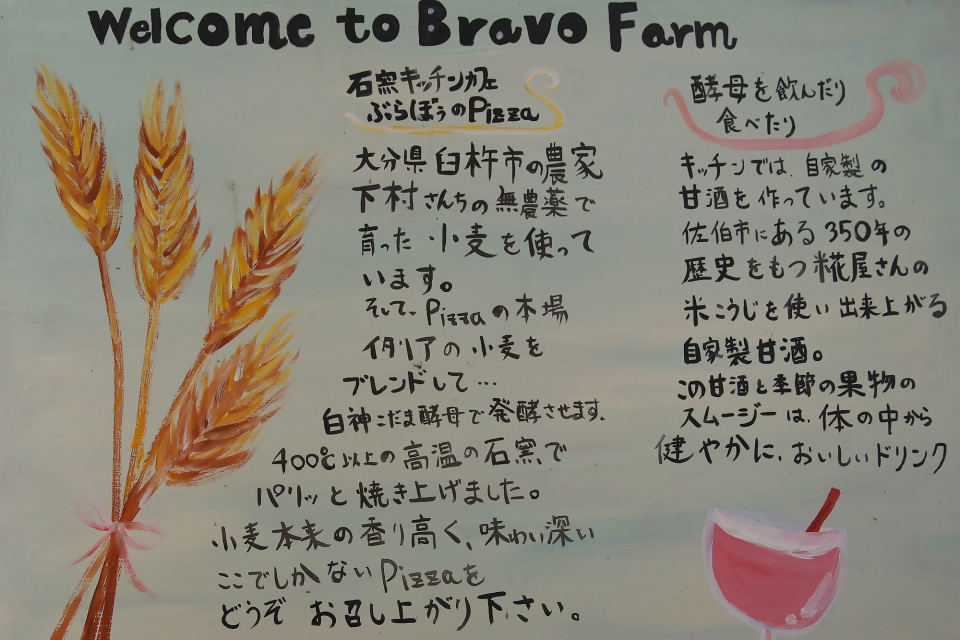 Welcome to Bravo Farm
石窯キッチンカフェ
ぶらぼぅのPizza
大分県臼杵市の農家
下村さんちの無農薬で
育った小麦を使って
います。
そして、Pizzaの本場
イタリアの小麦を
ブレンドして…
白神こだま酵母で発酵させます。
400℃以上の高温の石窯で
パリッと焼き上げました。
小麦本来の香り高く、味わい深い
ここでしかないPizzaを
どうぞお召し上がり下さい。
酵母を飲んだり
食べたり
キッチンでは、自家製の
甘酒を作っています。
佐伯市にある350年の
歴史をもつ糀屋さんの
米こうじを使い出来上がる
自家製甘酒。
この甘酒と季節の果物の
スムージーは、体の中から
健やかに、おいしいドリンク